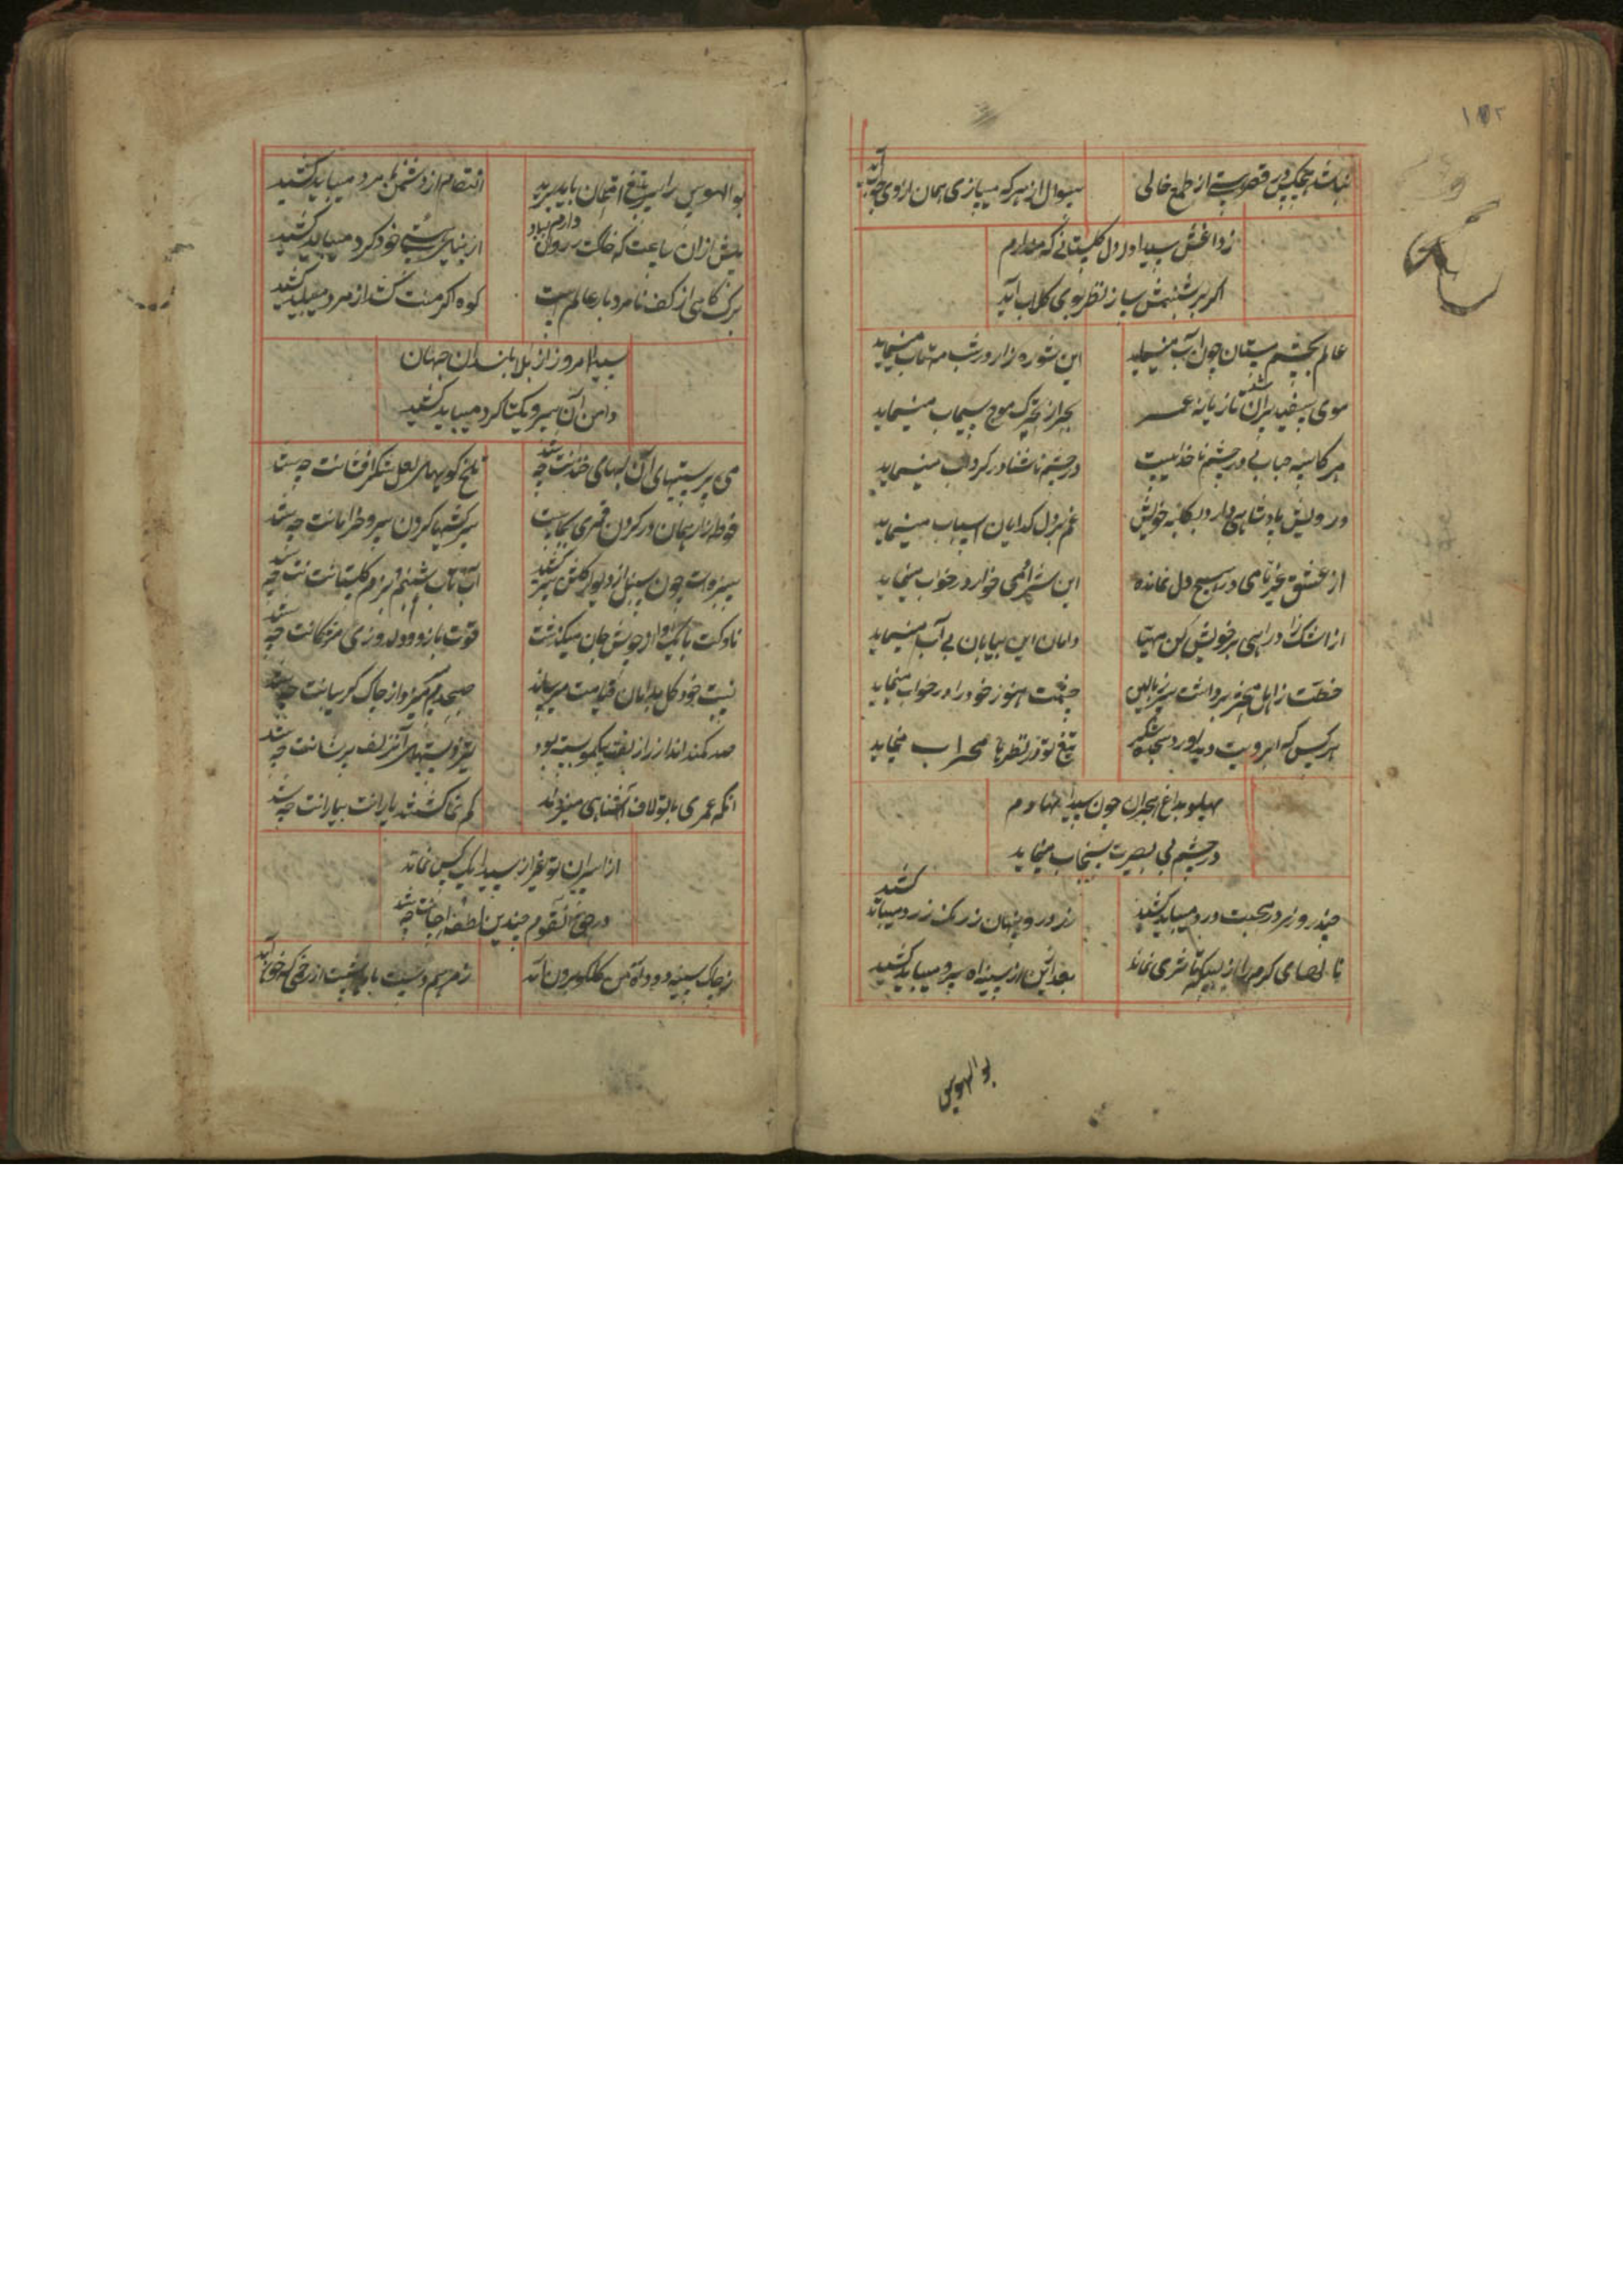 ۱۷۲
نباشد هیچکس در قصر هستی از طمع خالی
سوال از هر که میسازی همان از وی جواب آید
ز داغش سیدا در دل گلستانی که من دارم
اگر بر شبنمش سازد نظر بوی گلاب آید
عالم بچشم مستان چون آب مینماید
این شوره زار در شب مهتاب مینماید
موی سفید پیران شد تازیانه عمر
بحر از تحرک موج سیماب مینماید
هر کاسه حبابی در چشم ناخدا نیست
در چشم ناشناور گرداب مینماید
درویش پادشاهی دارد بکلبه خویش
غم بر دل گدایان اسباب مینماید
از عشق غیر نامی در هیچ دل نمانده
این شیر آدمی خوار در خواب مینماید
از اشک زاد راهی بر خویش کن مهیا
دامان این بیابان بی آب مینماید
خطت ز اهل محشر برداشت سر ز بالین
چشمت هنوز خود را در خواب مینماید
هر کس که ابرویت دید آورد سجده شکر
تیغ تو در نظرها محراب مینماید
پهلو بداغ هجران چون سیدا نهادم
در چشم بی بصیرت سنجاب مینماید
چند روزی در محبت درد میباید کشید
زر در و پنهان ز رنگ زرد میباید کشید
تا لحدهای کرم را از لیکها سری نماند
بعد ازین از سینه آه سرد میباید کشید
بوالهوس
بوالهوس را سر بتیغ امتحان باید برید
انتقام از دشمن نامرد میباید کشید
پیش ازان ساعت که خاکت را روان دارم بباد
از بنای هستی خود گرد میباید کشید
برگ کاهی از کف نامرد بار عالم است
کوه اگر منت کشد از مرد میباید کشید
سیدا امروز از بالا بلندان جهان
دامن آن سرو یکتا کرد میباید کشید
می پرستیهای آن لبهای خندانت چه شد
تلخ گوییهای لعل شکر افشانت چه شد
خط آزار همان در گردن قمری بجاست
سرکشیها کردن سرو خرامانت چه شد
سبزه ات چون سنبل از دیوار گلشن سر کشید
آب و تاب شبنم بزم گلستانت چه شد
ناوکت با یک ادا از جوش جان میگذشت
قوت بازوی و دل دوزی مژگانت چه شد
نیست خود گل بدامان قیامت میرساند
صبحدم میزد از چاک گریبانت چه شد
صد کمند انداز را زلفت بیکمو بسته بود
تیزدستیهای آن زلف پریشانت چه شد
آنکه عمری با تو لاف آشنایی میزدند
کم نما گشتند یارانت یارانت چه شد
از اسیران تو غیر از سیدا یک کس نماند
در حق آنقوم چندین لطف و احسانت چه شد
ز چاک سینه دود آه من گلگون برون آید
ز مرهم دست باید شست از زخمی که خون آید